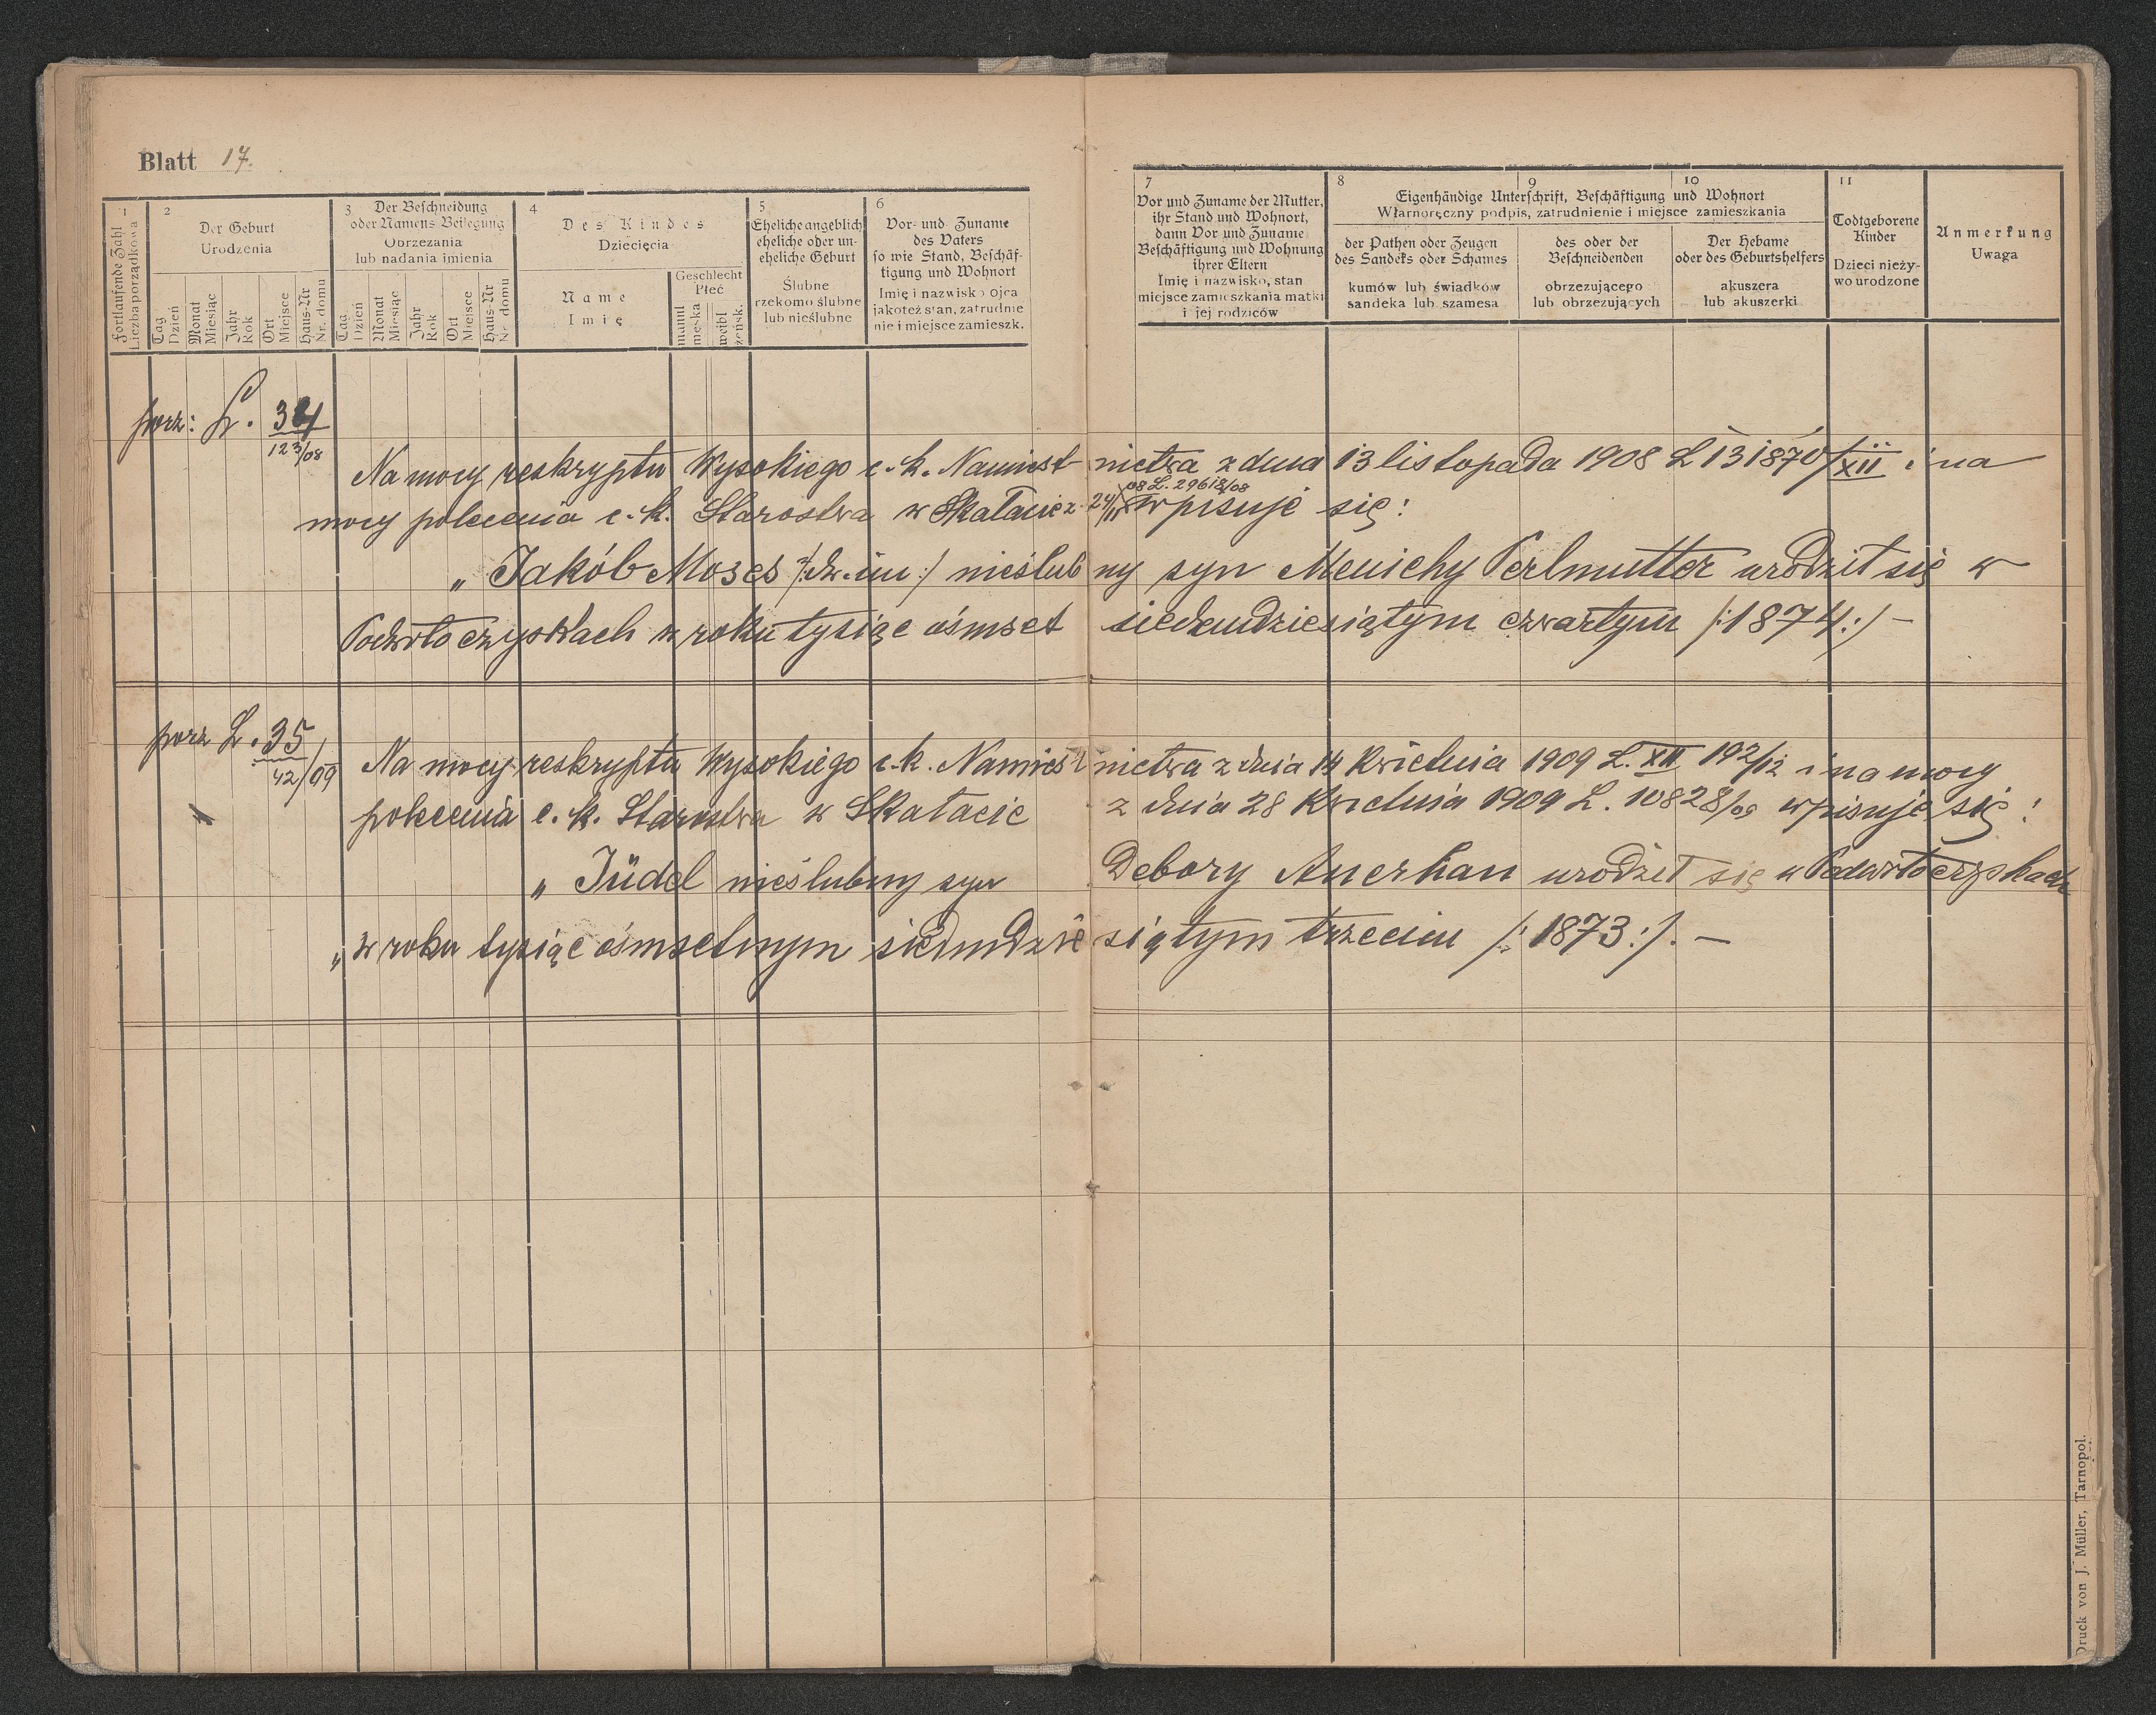 Blatt 17.
1
Fortlaufende Zahl
Liczba porządkowa
2
Der Geburt
Urodzenia
Tag
Dzień
Monat
Miesiąc
Jahr
Rok
Ort
Miejsce
Haus-Nr
Nr. domu
3
Der Beschneidung
oder Namens Beilegung
Obrzezania
lub nadania imienia
Tag
Dzień
Monat
Miesiąc
Jahr
Rok
Ort
Miejsce
Haus-Nr
Nr domu
4
Des Kindes
Dziecięcia
Name
Imię
Geschlecht
Płeć
männl
męska
weibl
żeńsk.
5
Eheliche angeblich
eheliche oder un-
eheliche Geburt
Ślubne
rzekomo ślubne
lub nieślubne
6
Vor- und Zuname
des Vaters
so wie Stand, Beschäf-
tigung und Wohnort
Imię i nazwisko ojca
jakoteż stan, zatrudnie
nie i miejsce zamieszk.
7
Vor und Zuname der Mutter,
ihr Stand und Wohnort,
dann Vor und Zuname
Beschäftigung und Wohnung
ihrer Eltern
Imię i nazwisko, stan
miejsce zamieszkania matki
i jej rodziców
8 9 10
Eigenhändige Unterschrift, Beschäftigung und Wohnort
Własnoręczny podpis, zatrudnienie i miejsce zamieszkania
der Pathen oder Zeugen
des Sandeks oder Schames
kumów lub świadków
sandeka lub szamesa
des oder der
Beschneidenden
obrzezującego
lub obrzezujących
Der Hebame
oder des Geburtshelfers
akuszera
lub akuszerki
11
Todtgeborene
Kinder
Dzieci nieży-
wo urodzone
Anmerkung
Uwaga
porz: L. 34
123/08
Na mocy reskryptu Wysokiego c. k. Namiestnictwa z dnia 13 listopada 1908 L 131870/XII i na
mocy polecenia c. k. Starostwa w Skałacie z 24/11 08 L. 29618/08 wpisuje się:
„ Jakób Moses /:dw. im:/ nieślubny syn Menichy Perlmutter urodził się w
Podwołoczyskach w roku tysiąc ośmset siedemdziesiątym czwartym /:1874:/ —
porz L. 35
42/09
Na mocy reskryptu Wysokiego c. k. Namiestnictwa z dnia 14 kwietnia 1909 L. XII 192/12 i na mocy
polecenia c. k. Starostwa w Skałacie z dnia 28 kwietnia 1909 L. 10828/09 wpisuje się:
„ Jüdel nieślubny syn Debory Auerhan urodził się w Podwołoczyskach
„ w roku tysiąc ośmsetnym siedmdziesiątym trzecim /:1873:/. —
Druck von J. Müller, Tarnopol.